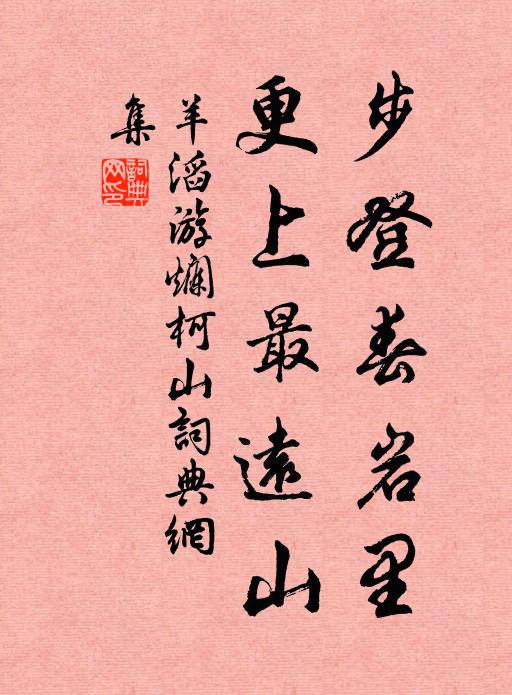 步登春岩里
更上最遠山
羊滔游爛柯山詞典網
集
詞典網印